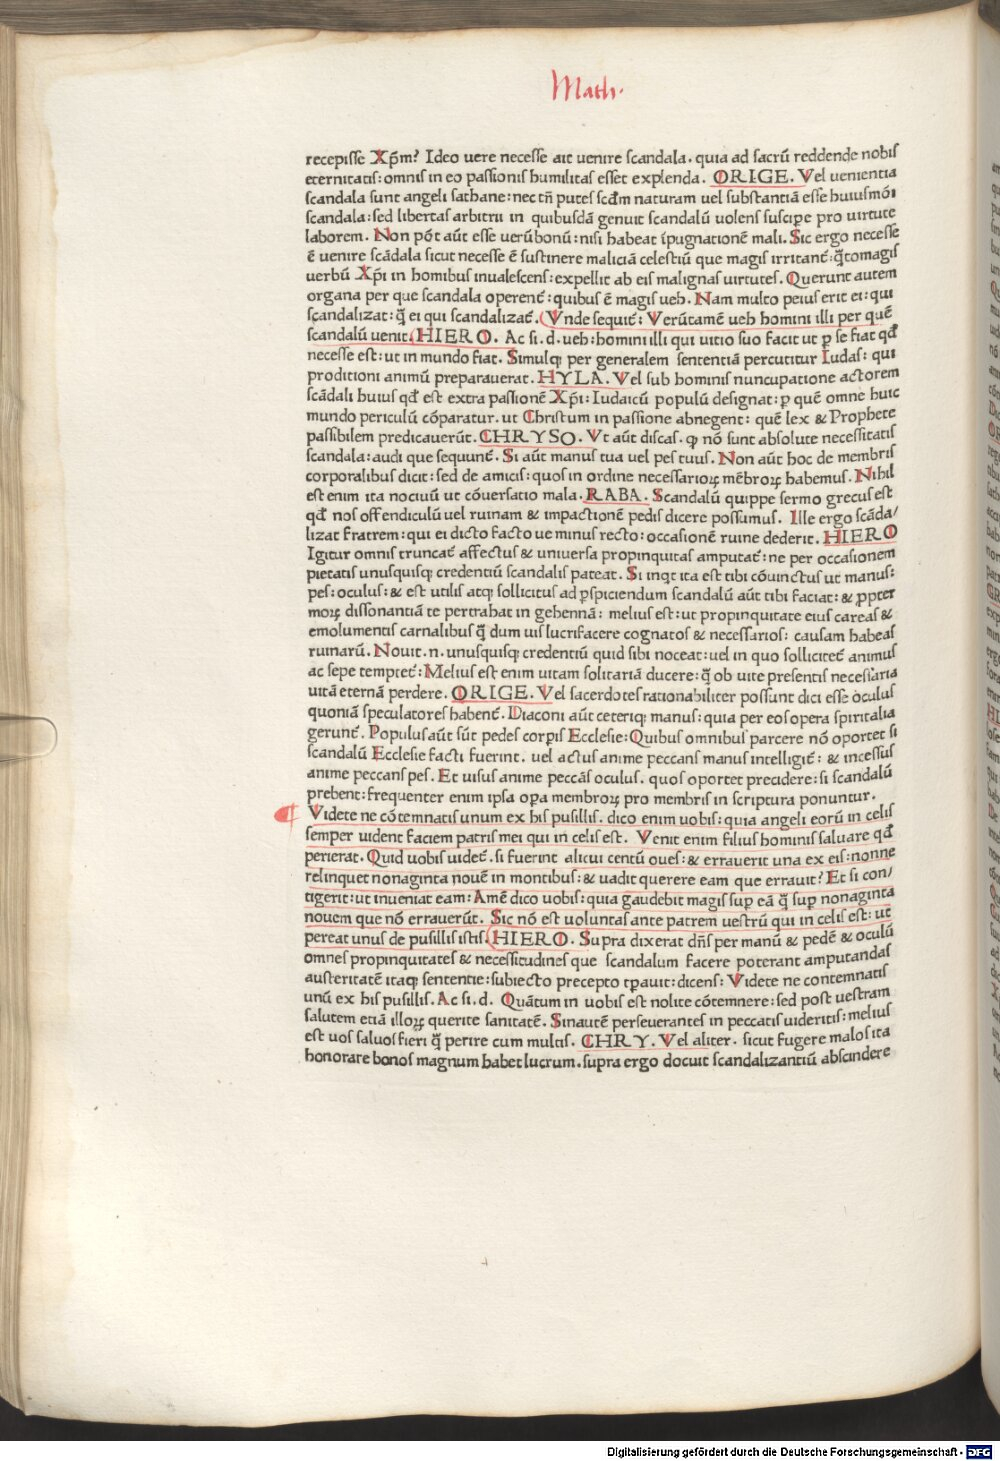 Math.
recepisse Xp̄m? Ideo uere necesse ait uenire scandala. quia ad sacrū reddende nobis
eternitatis: omnis in eo passionis humilitas esset explenda. ORIGE. Vel uenientia
scandala sunt angeli sathane: nec tn̄ putes scd̄m naturam uel substantiā esse huiusmōi
scandala: sed libertas arbitrii in quibusdā genuit scandalū uolens suscipe pro uirtute
laborem. Non pōt aūt esse uerūbonū: nisi habeat īpugnationē mali. Sic ergo necesse
ē uenire scādala sicut necesse ē sustinere maliciā celestiū que magis irritant̄: q̄tomagis
uerbū Xp̄i in homibus inualescens: expellit ab eis malignas uirtutes. Querunt autem
organa per que scandala operent̄: quibus ē magis ueh. Nam multo peius erit ei: qui
scandalizat: q̄ ei qui scandalizat̄. Vnde sequit̄: Verūtamē ueh homini illi per quē
scandalū uenit. HIERO. Ac si. d. ueh: homini illi qui uitio suo facit ut p̱ se fiat qd̄
necesse est: ut in mundo fiat. Simulqꝫ per generalem sententiā percutitur Iudas: qui
proditioni animū preparauerat. HYLA. Vel sub hominis nuncupatione actorem
scādali huius qd̄ est extra passionē Xp̄i: Iudaicū populū designat: p̱ quē omne huic
mundo periculū cōparatur. ut Christum in passione abnegent: quē lex & Prophete
passibilem predicauerūt. CHRYSO. Vt aūt discas. ꝙ nō sunt absolute necessitatis
scandala: audi que sequunt̄. Si aūt manus tua uel pes tuus. Non aūt hoc de membris
corporalibus dicit: sed de amicis: quos in ordine necessarioꝝ mēbroꝝ habemus. Nihil
est enim ita nociuū ut cōuersatio mala. RABA. Scandalū quippe sermo grecus est
qd̄ nos offendiculū uel ruinam & impactionē pedis dicere possumus. Ille ergo scāda/
lizat fratrem: qui ei dicto facto ue minus recto: occasionē ruine dederit. HIERO
Igitur omnis truncat̄ affectus & uniuersa propinquitas amputat̄: ne per occasionem
pietatis unusquisqꝫ credentiū scandalis pateat. Si inqt ita est tibi cōuinctus ut manus:
pes: oculus: & est utilis atqꝫ sollicitus ad p̱spiciendum scandalū aūt tibi faciat: & ꝓpter
moꝝ dissonantiā te pertrahat in gehennā: melius est: ut propinquitate eius careas &
emolumentis carnalibus q̄ dum uis lucrifacere cognatos & necessarios: causam habeas
ruinarū. Nouit. n. unusquisqꝫ credentiū quid sibi noceat: uel in quo sollicitet̄ animus
ac sepe temptet̄: Melius est enim uitam solitariā ducere: q̄ ob uite presentis necessaria
uitā eternā perdere. ORIGE. Vel sacerdotes rationabiliter possunt dici esse oculus
quoniā speculatores habent̄. Diaconi aūt ceteriqꝫ manus: quia per eos opera spiritalia
gerunt̄. Populus aūt sūt pedes corpis Ecclesie: Quibus omnibus parcere nō oportet si
scandalū Ecclesie facti fuerint. uel actus anime peccans manus intelligit̄: & incessus
anime peccans pes. Et uisus anime peccās oculus. quos oportet precidere: si scandalū
prebent: frequenter enim ipsa oꝑa membroꝝ pro membris in scriptura ponuntur.
¶ Videte ne cōtemnatis unum ex his pusillis. dico enim uobis: quia angeli eorū in celis
semper uident faciem patris mei qui in celis est. Venit enim filius hominis saluare qd̄
perierat. Quid uobis uidet̄. si fuerint alicui centū oues: & errauerit una ex eis: nonne
relinquet nonaginta nouē in montibus: & uadit querere eam que errauit? Et si con/
tigerit: ut inueniat eam: Amē dico uobis: quia gaudebit magis suꝑ eā q̄ suꝑ nonaginta
nouem que nō errauerūt. Sic nō est uoluntas ante patrem uestrū qui in celis est: ut
pereat unus de pusillis istis. HIERO. Supra dixerat dn̄s per manū & pedē & oculū
omnes propinquitates & necessitudines que scandalum facere poterant amputandas
austeritatē itaqꝫ sententie: subiecto precepto tꝑauit: dicens: Videte ne contemnatis
unū ex his pusillis. Ac si. d. Quātum in uobis est nolite cōtemnere: sed post uestram
salutem etiā illoꝝ querite sanitatē. Sinautē perseuerantes in peccatis uideritis: melius
est uos saluos fieri q̄ perire cum multis. CHRY. Vel aliter. sicut fugere malos ita
honorare bonos magnum habet lucrum. supra ergo docuit scandalizantiū abscindere
Digitalisierung gefördert durch die Deutsche Forschungsgemeinschaft - DFG